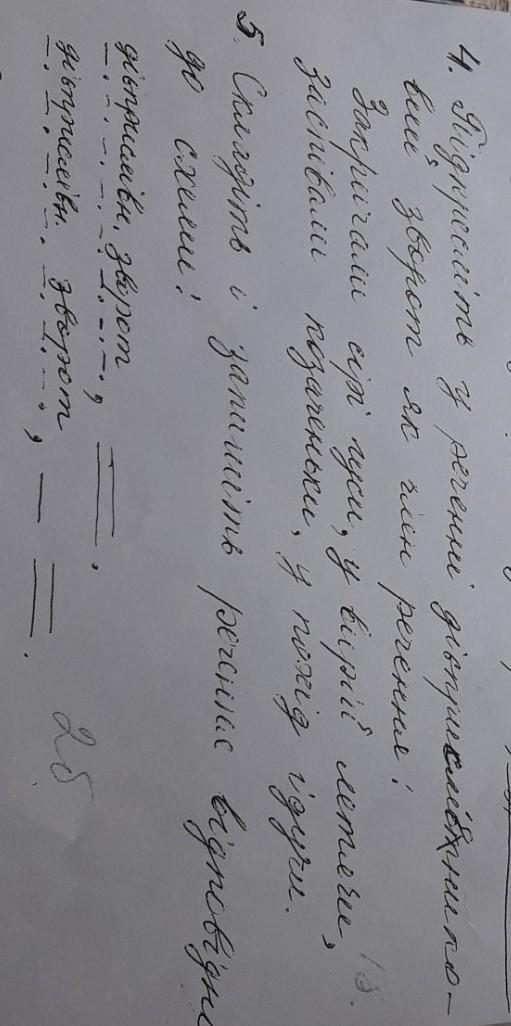 4. Підкресліть у реченні дієприслівнико-
вий зворот як член речення:
Закричали сірі гуси, у вирій летячи,
Заспівали козаченьки, у похід ідучи.
1б.
5. Складіть і запишіть речення відповідно
до схеми:
дієприслівн. зворот, ═.
дієприслівн. зворот, — ═.
2б